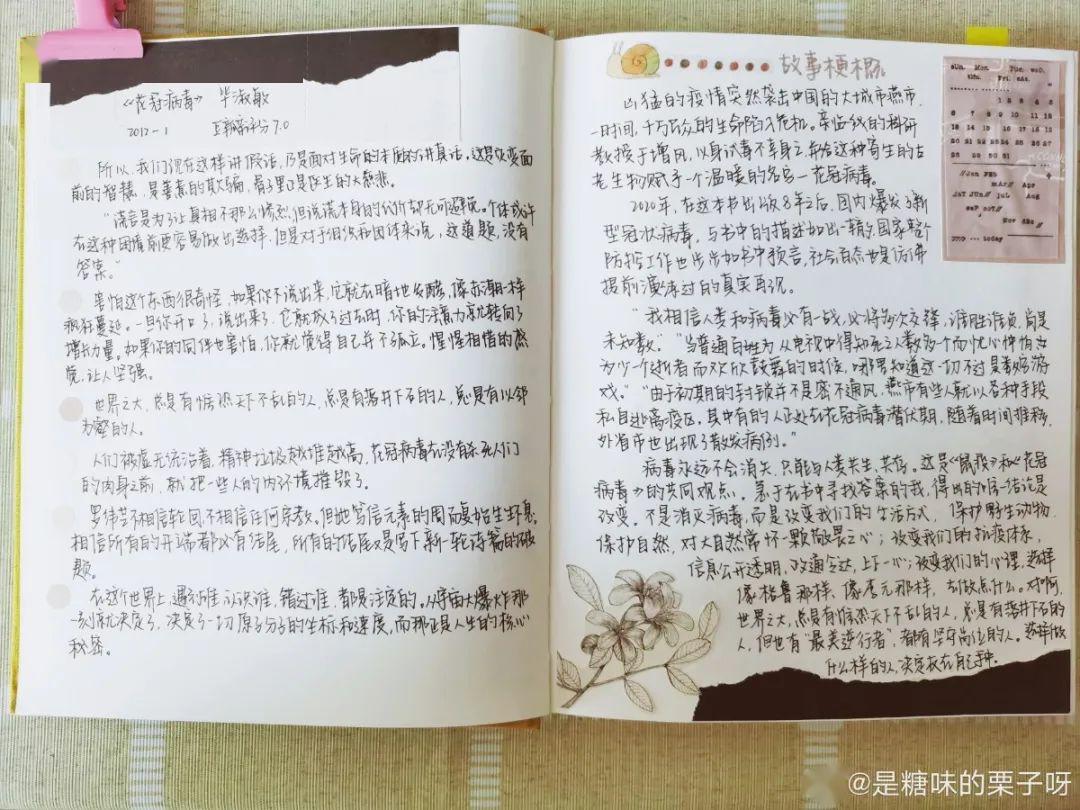 《花冠病毒》 毕淑敏
2012-1 豆瓣评分7.0
所以,我们现在这样讲假话,乃是面对生命的本质的讲真话。这是灾变面
前的智慧,是善意的欺骗,骨子里是医生的大慈悲。
"谎言是为了让真相不那么惨烈,但说谎本身的代价却无可避免。个体或许
在这种困境前更容易做出选择,但是对于组织和团体来说,这道题,没有
答案。"
害怕这个东西很奇怪,如果你不说出来,它就在暗地发酵,像赤潮一样
疯狂蔓延。一旦你开口了,说出来了,它就放了过去时,你的注意力就转向了
增长力量。如果你的同伴也害怕,你就觉得自己并不孤立。惺惺相惜的感
觉,让人坚强。
世界之大,总是有惟恐天下不乱的人,总是有落井下石的人,总是有以邻
为壑的人。
人们被虚无统治着,精神垃圾越堆越高,花冠病毒在没有杀死人们
的肉身之前,就把一些人的内环境摧毁了。
罗纬芝不相信轮回,不相信任何宗教。但她笃信元素的周而复始生生不息。
相信所有的开端都必有结尾,所有的结尾又是写下新一轮诗篇的破
题。
在这个世界上,遇到谁,认识谁,错过谁,都是注定的。从宇宙大爆炸那
一刻就决定了,决定了一切原子分子的坐标和速度,而那正是人生的核心
秘密。
故事梗概
凶猛的疫情突然袭击中国的大城市燕市,
一时间,千万民众的生命陷入危机。亲临一线的科研
教授于增风,以身试毒不幸身亡,并给这种寄生的古
老生物赋予一个温暖的名字—花冠病毒。
2020年,在这本书出版8年之后,国内爆发了新
型冠状病毒,与书中的描述如出一辙,国家整个
防控工作也步步如书中预言,社会百态也是仿佛
提前演练过的真实再现。
"我相信人类和病毒必有一战,必将多次交锋,谁胜谁负,尚是
未知数。" "当普通百姓为从电视中得知死亡人数为个而忧心忡忡为
为少一个逝者而欢欣鼓舞的时候,哪里知道这一切不过是数字游
戏。" "由于初期的封锁并不是密不透风,燕市有些人就以各种手段
私自逃离疫区。其中有的人正处在花冠病毒潜伏期,随着时间推移,
外省市也出现了散发病例。"
病毒永远不会消失,只能与人类共生、共存。这是《鼠疫》和《花冠
病毒》的共同观点。急于在书中寻找答案的我,得出的唯一结论是
改变。不是消灭病毒,而是改变我们的生活方式,保护野生动物,
保护自然,对大自然常怀一颗敬畏之心;改变我们的抗疫体系,
信息公开透明,政通令达,上下一心;改变我们的心理,选择
像格鲁那样、像李元那样,去做点什么。对啊,
世界之大,总是有惟恐天下不乱的人,总是有落井下石的
人,但也有"最美逆行者",都有坚守岗位的人。选择做
什么样的人,决定权在自己手中。
@是糖味的栗子呀